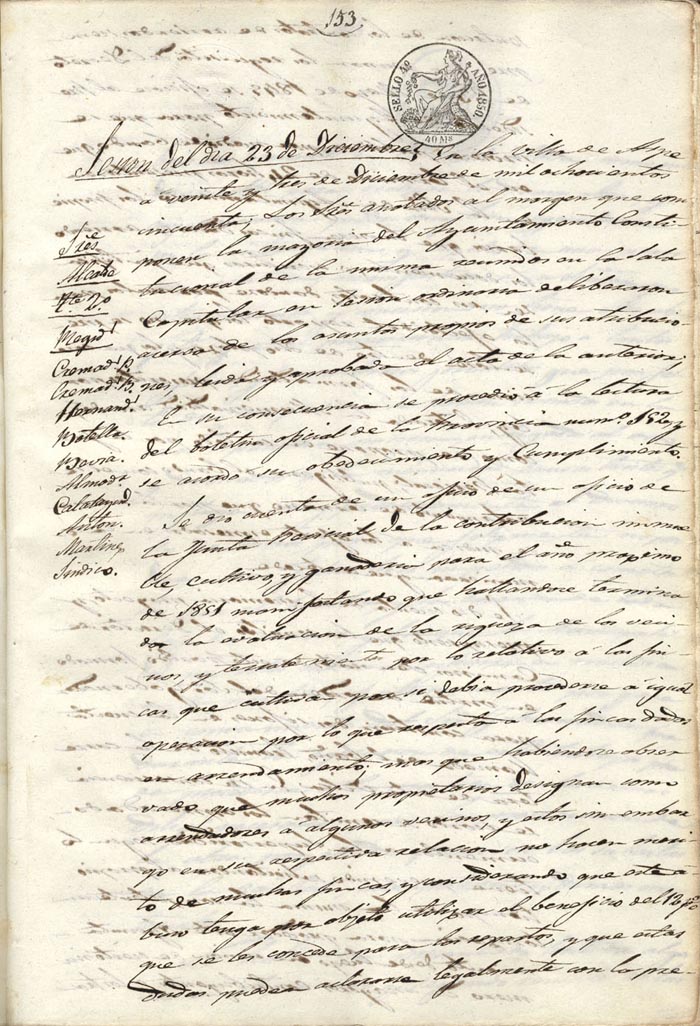 153
SELLO 4º AÑO 1850.
40 Ms
Sesion del dia 23 de Diciembre. En la villa de Aspe
á veinte y tres de Diciembre de mil ochocientos
cincuenta; Los Sres anotados al margen que com
ponen la mayoria del Ayuntamiento Consti
tucional de la misma reunidos en la Sala
Capitular en sesion ordinaria deliberaron
acerca de los asuntos propios de sus atribucio
nes, leida y aprobada el acta de la anterior;
En su consecuencia se procedió á la lectura
del boletin oficial de la Provincia num.º 152 y
se acordó su obedecimiento y Cumplimiento.
Se dio cuenta de un oficio de un oficio de
la Junta Pericial de la contribucion inmue
ble, cultivo, y ganaderia para el año proximo
de 1851 manifestando que hallandose termina
da la evaluacion de la riqueza de los veci
nos, y terratenientes por lo relativo á las fin
cas que cultivan por si debia procederse á igual
operacion por lo que respecta á las fincas dadas
en arrendamiento; mas que habiendose obser
vado que muchos propietarios designan como
arrendadores á algunos vecinos, y estos sin embar
go en su respectiva relacion no hacen meri
to de muchas fincas, y considerando que este a
buso tenga por objeto utilizar el beneficio del 12 p%
que se les concede para los repartos, y que estas
dudas puedan aclararse legalmente con la pre
Sres
Alcalde
Tte 2.º
Megid
Cremad.s P.
Cremad.s B.
Hernand.
Botella.
Pavia.
Almod.r
Calatayud.
Anton.
Martinez
Sindico.